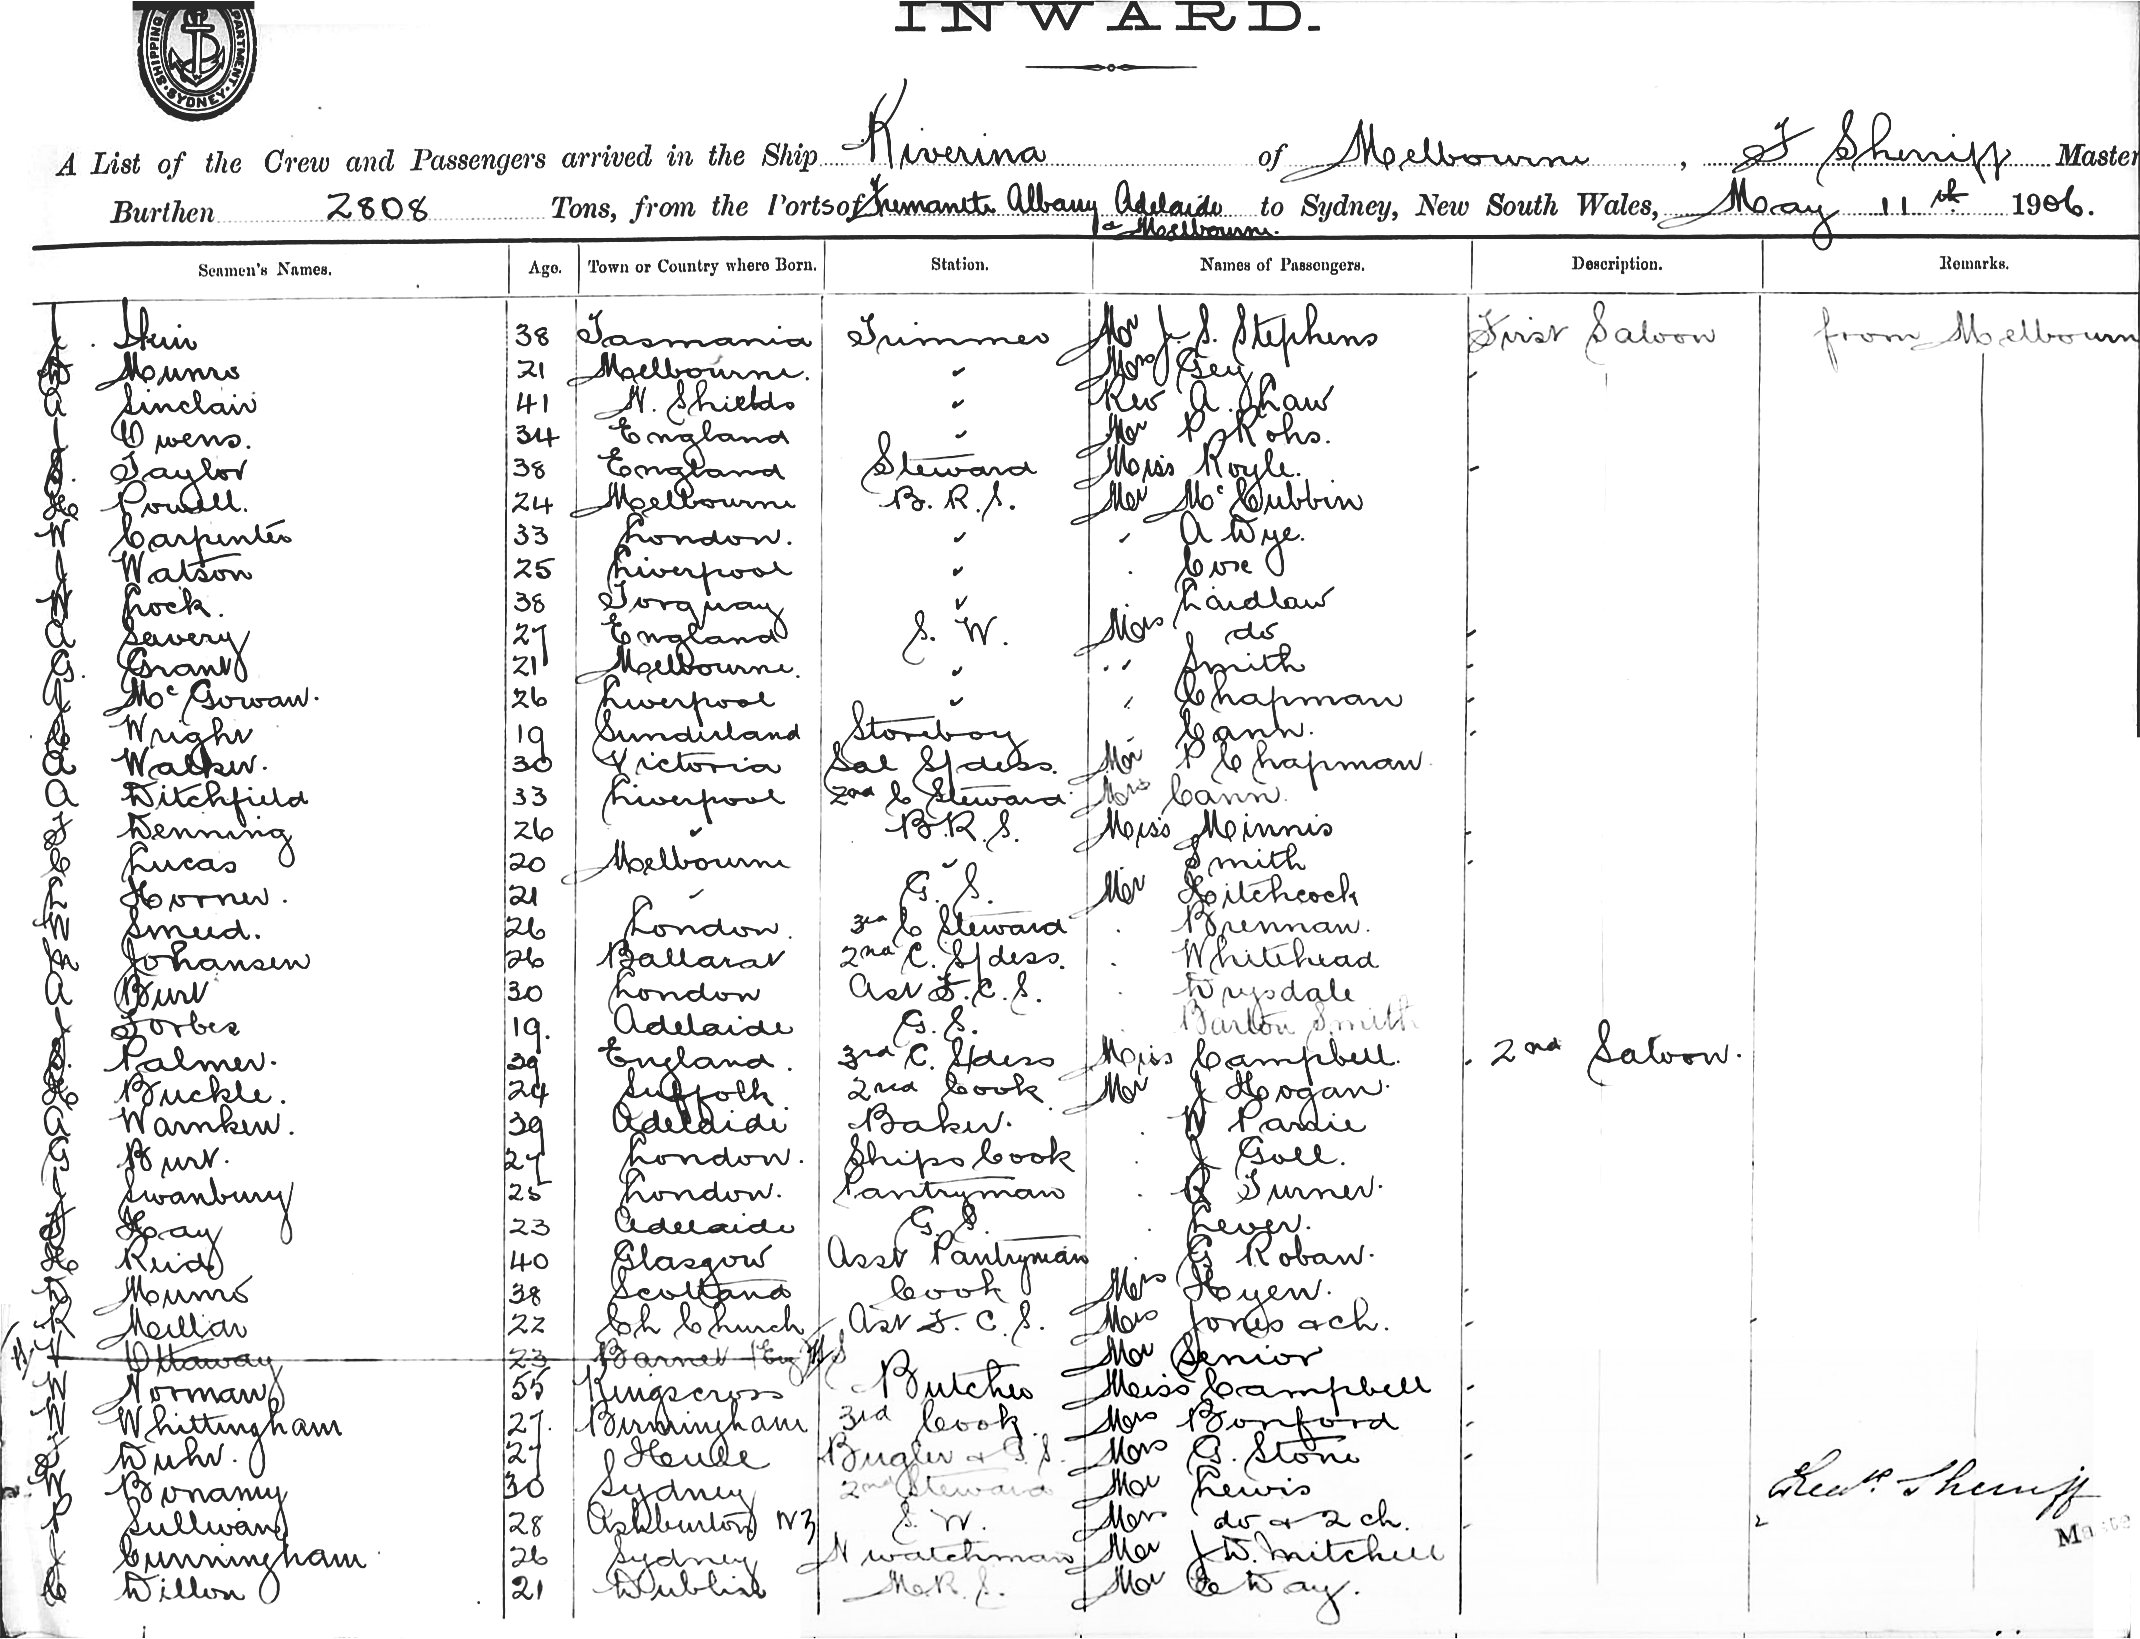 SHIPPING DEPARTMENT SYDNEY
INWARD.
A List of the Crew and Passengers arrived in the Ship Riverina of Melbourne, F Sherriff Master
Burthen 2808 Tons, from the Ports of Fremantle Albany Adelaide to Sydney, New South Wales, May 11th 1906.
& Melbourne.
Seamen's Names. Age. Town or Country where Born. Station. Names of Passengers. Description. Remarks.
J 38 Tasmania Trimmer Mr J. S. Stephens First Saloon from Melbourn
D Munro 21 Melbourne. " Mrs Gey
A Sinclair 41 N. Shields " Rev A. Shaw
J Owens. 34 England " Mr P Rohs.
S. Taylor 38 England Steward Miss Royle.
H Powell. 24 Melbourne B. R. S. Mr McCubbin
W Carpenter 33 London. " " A Dye.
J Watson 25 Liverpool " " Cox
W Lock. 38 Torquay " Laidlaw
A Savery 27 England S. W. Mrs do
G. Grant 21 Melbourne. " " Smith
J McGowan. 26 Liverpool " " Chapman
C Wright 19 Sunderland Storeboy " Cann.
A Walker. 30 Victoria Sal S/dess. Mr P Chapman
A Ditchfield 33 Liverpool 2nd C Steward Mrs Cann.
F Denning 26 " B.R.S. Miss Minnis
C Lucas 20 Melbourne " Smith
L Horner. 21 " G. S. Mr Hitchcock
W Smeed. 26 London. 3rd C Steward " Brennan.
M Johansen 26 Ballarat 2nd C. S/dess. " Whitehead
A Burt 30 London Ast F. C. S. " Drysdale
J Forbes 19. Adelaide G. S. " Barton Smith
S. Palmer. 39 England. 3rd C. S/dess Miss Campbell. 2nd Saloon.
H Buckle. 24 Suffolk 2nd Cook Mr J Hogan.
A Warnken. 39 Adelaide Baker. " W Pardie
G Burt. 27 London. Ships Cook " J Goll.
J Swanbury 25 London. Pantryman " R Turner.
Hay 23 Adelaide G. S. " Lever.
H Reid 40 Glasgow Asst Pantryman " G Roban.
D Munro 38 Scotland Cook Mrs Hyen.
R Millar 22 Ch Church Ast F. C. S. Mrs Jones & ch.
Ottaway 23 Barnet (Eng) Mr Senior
W Norman 55 Kingscross Butcher Miss Campbell
W Whittingham 27. Birmingham 3rd Cook. Mrs Bonford
Duhr. 27 Bugler & G. S. Mrs G. Stone
W Bonamy 30 Sydney 2nd Steward Mr Lewis
R Sullivan 28 Ashburton NZ S. W. Mrs do & 2 ch.
J Cunningham 26 Sydney N watchman Mr J D. Mitchell
C Dillon 21 Dublin M. R. S. Mr C Day.
Fredk Sherriff
Maste